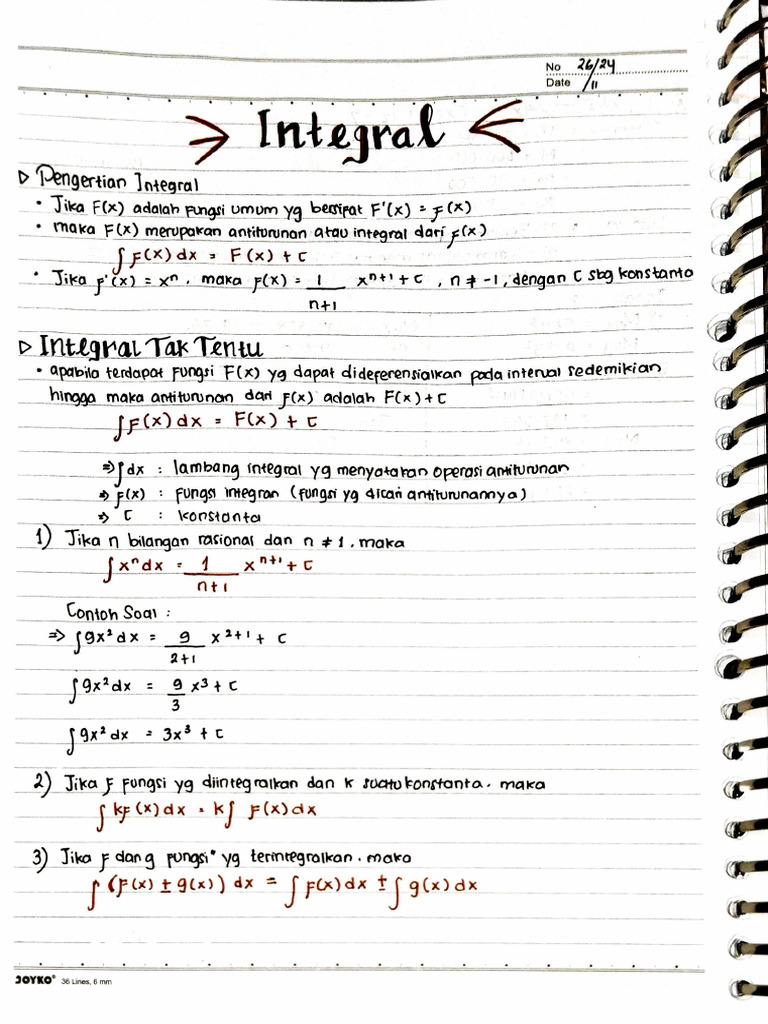 No 26/24
Date /11
Integral
▷ Pengertian Integral
• Jika F(x) adalah fungsi umum yg bersifat F'(x) = f(x)
• maka F(x) merupakan antiturunan atau integral dari f(x)
∫ f(x) dx = F(x) + C
• Jika f'(x) = xⁿ, maka f(x) = 1/(n+1) xⁿ⁺¹ + C, n ≠ -1, dengan C sbg konstanta
▷ Integral Tak Tentu
• apabila terdapat fungsi F(x) yg dapat dideferensialkan pada interval sedemikian
hingga maka antiturunan dari f(x) adalah F(x) + C
∫ F(x) dx = F(x) + C
⇒ ∫ dx : lambang integral yg menyatakan operasi antiturunan
⇒ f(x) : fungsi integran (fungsi yg dicari antiturunannya)
⇒ C : konstanta
1) Jika n bilangan rasional dan n ≠ 1. maka
∫ xⁿ dx = 1/(n+1) xⁿ⁺¹ + C
Contoh Soal :
⇒ ∫ 9x² dx = 9/(2+1) x²⁺¹ + C
∫ 9x² dx = 9/3 x³ + C
∫ 9x² dx = 3x³ + C
2) Jika f fungsi yg diintegralkan dan k suatu konstanta. maka
∫ kf(x) dx = k ∫ f(x) dx
3) Jika f dan g fungsi" yg terintegralkan. maka
∫ (f(x) ± g(x)) dx = ∫ f(x) dx ± ∫ g(x) dx
JOYKO® 36 Lines, 6 mm